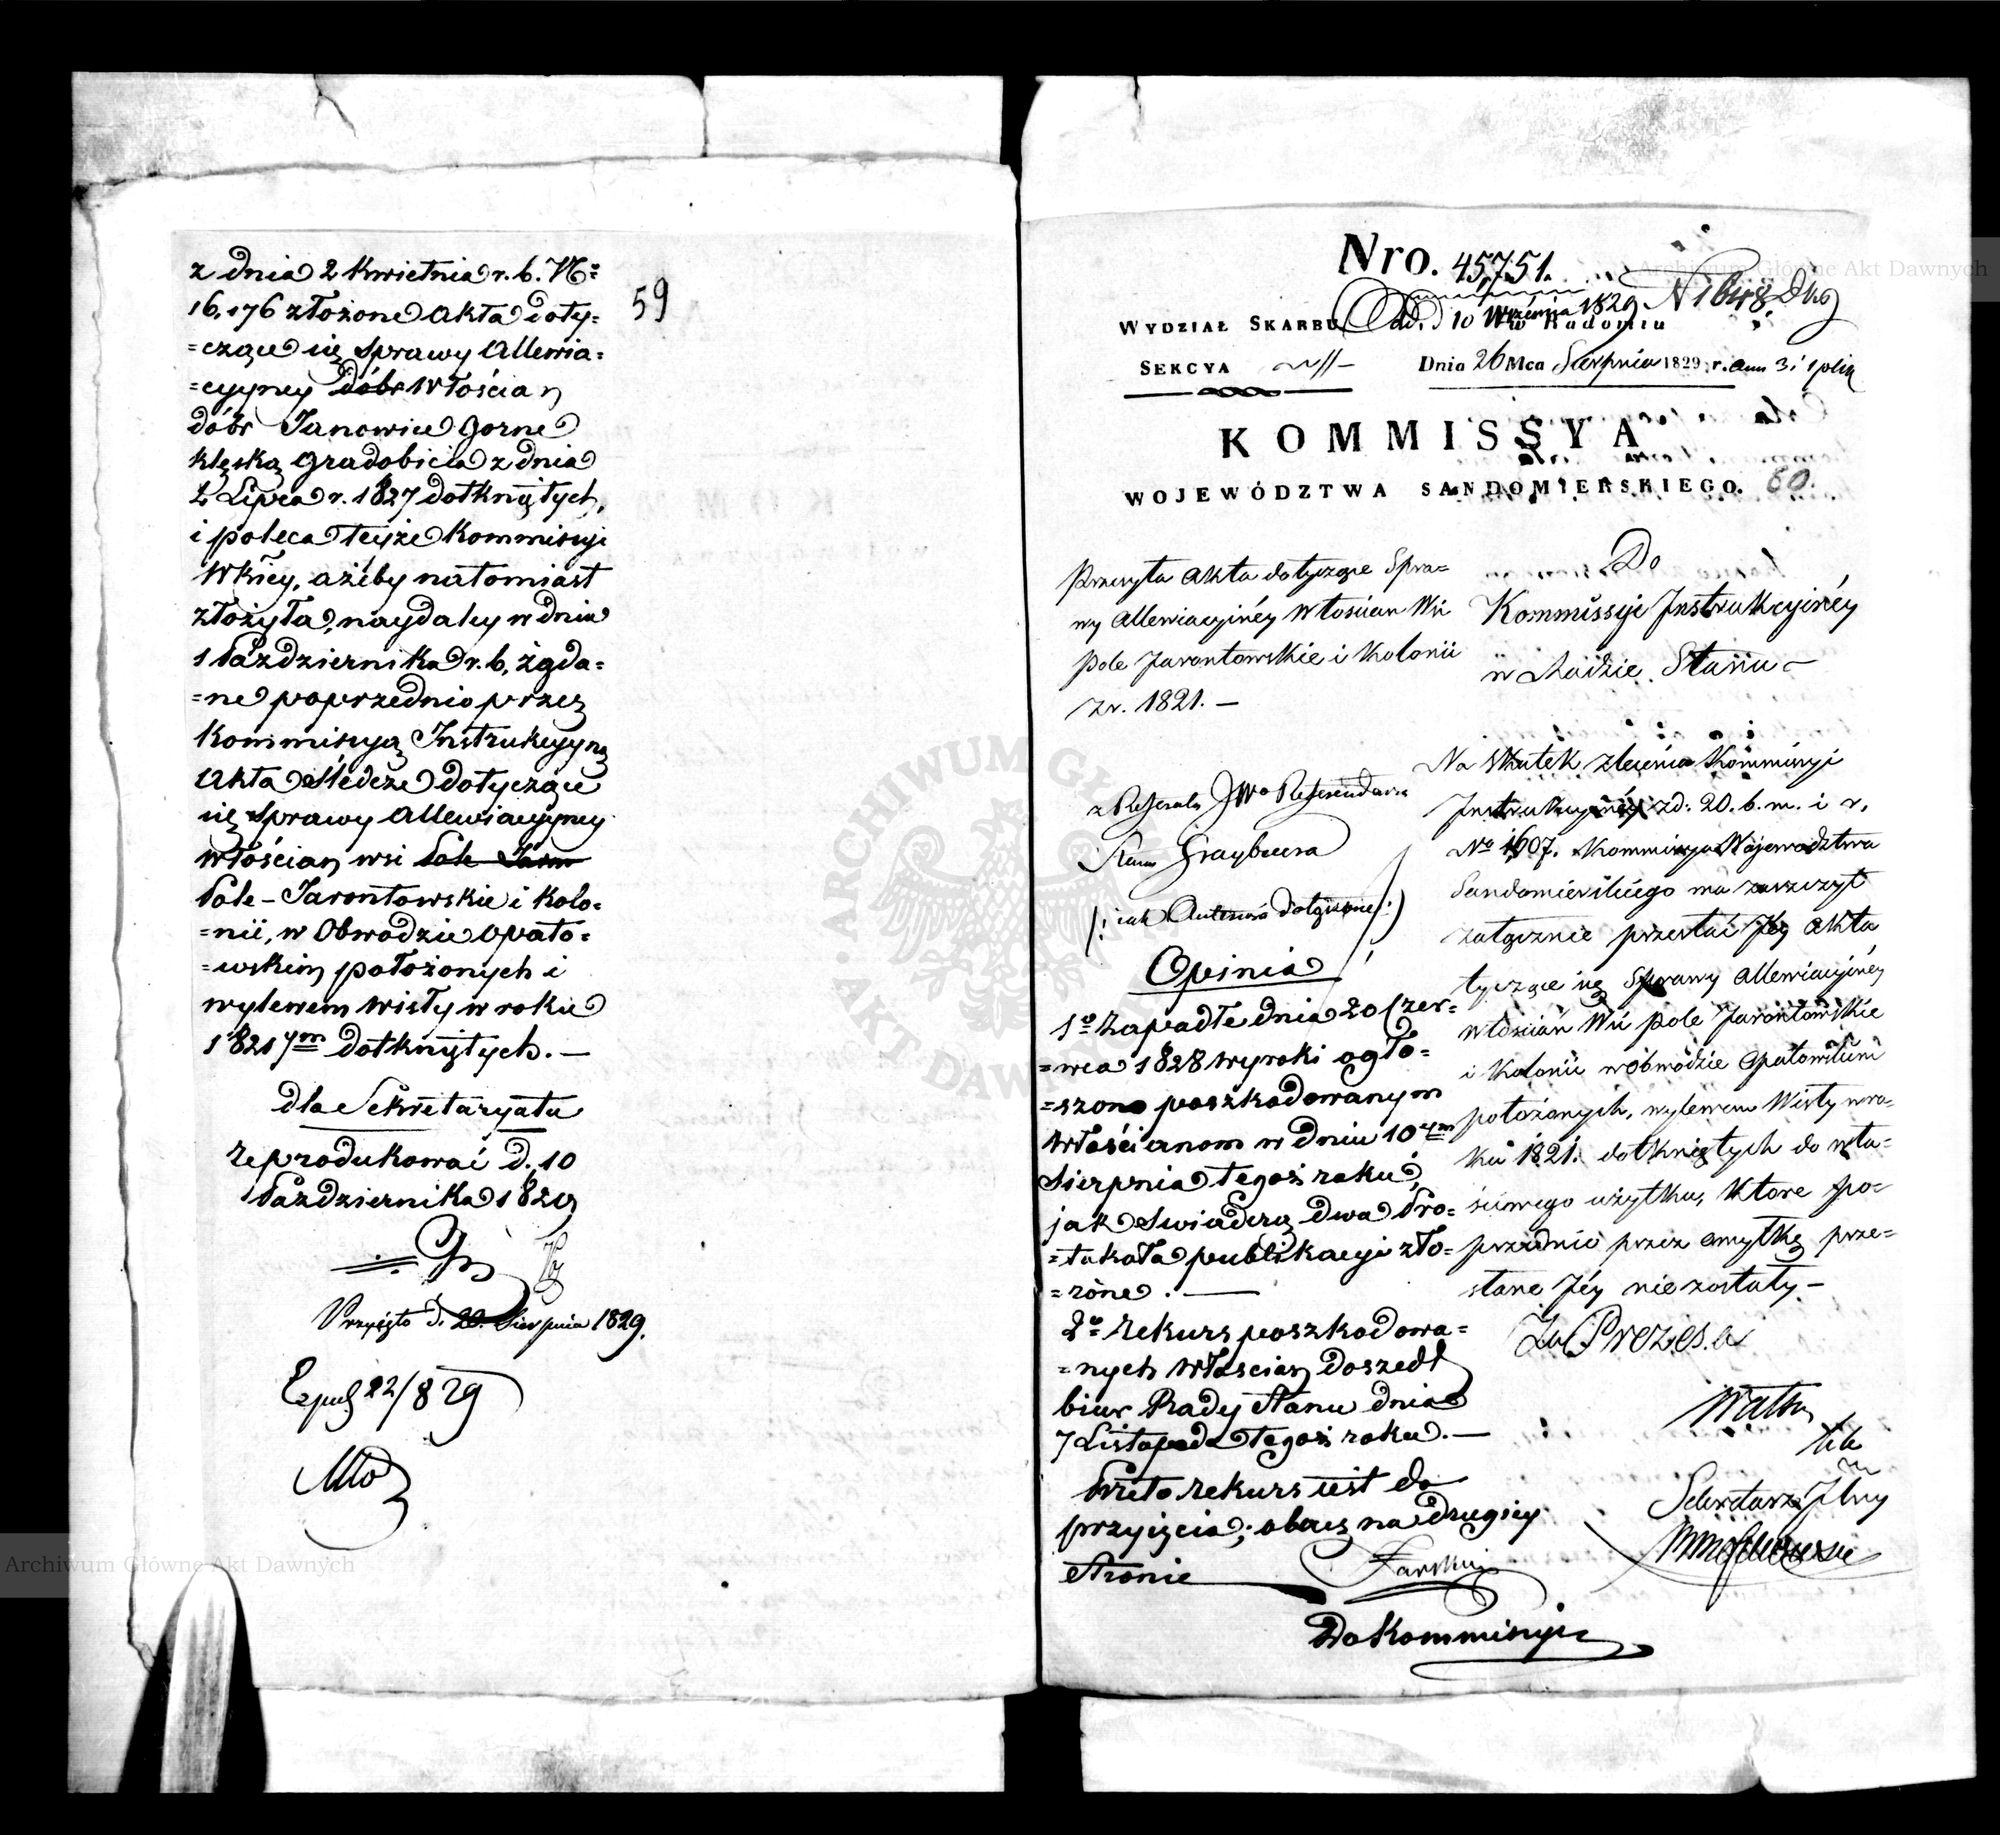 z dnia 2 Kwietnia r. b. No
16,176 złożone Akta doty=
=czące się sprawy Allewia=
=cyyney dóbr Włościan
dóbr Janowice Gorne
klęską gradobicia z dnia
Lipca r. 1827 dotkniętych,
i poleca teyże Kommissyi
Wkiey, ażeby natomiast
złożyła, naydaley w dniu
1 Października r. b. żąda=
=ne poprzednio przez
Kommissyą Instrukcyyną
Akta śledcze dotyczące
się sprawy Allewiacyyney
włościan wsi Pole Jaron
Pole-Jarontowskie i Kolo=
=nii, w Obwodzie Opato=
=wskim położonych i
wylewem Wisły w roku
1821ym dotkniętych. —
dla Sekretaryatu
reprodukować d. 10
Października 1829
Przyięto d. 20. Sierpnia 1829.
Exped 22/8 29
59
Nro. 45,751.
Odd. d 10 Września 1829 N 1648 Dkg
WYDZIAŁ SKARBU w Radomiu
SEKCYA Dnia 26 Mca Sierpnia 1829 r. ann 3 i 1 plik
KOMMISSYA
WOJEWÓDZTWA SANDOMIERSKIEGO.
60.
Przesyła Akta dotyczące Spra=
wy Allewiacyinéy Włościan Wsi
Pole Jarontowskie i Kolonii
z r. 1821. —
z Referatu JWo Referendarza
Stanu
(: iak Anteriora dołączone :)
Opinia
1o Zapadłe dnia 20 Czer=
=wca 1828 wyroki ogło=
=szono poszkodowanym
Włościanom w dniu 10ym
Sierpnia tegoż roku,
jak świadczą dwa Pro=
=tokoła publikacyi zło=
=żone. —
2o Rekurs poszkodowa=
=nych Włościan doszedł
biur Rady Stanu dnia
7 Listopada tegoż roku. —
Przeto rekurs iest do
przyięcia; obacz na drugiey
Stronie
Do
Kommissyi Instrukcyinéy
w Radzie Stanu —
Na skutek zlecenia Kommissyi
Instrukcyinéy z d: 20. b. m. i r.
No 1607. Kommissya Województwa
Sandomierskiego ma zaszczyt
załącznie przesłać Jey Akta
tyczące się Sprawy Allewiacyinéy
Włościan Wsi Pole Jarontowskie
i Kolonii w Obwodzie Opatowskim
położonych, wylewem Wisły w ro=
ku 1821. dotkniętych do wła=
ściwego użytku, które po=
przednio przez omyłkę prze=
słane Jéy nie zostały —
Za Prezesa
Sekretarz Jlny
Do Kommissyi
Archiwum Główne Akt Dawnych
ARCHIWUM GŁÓWNE AKT DAWNYCH
Archiwum Główne Akt Dawnych